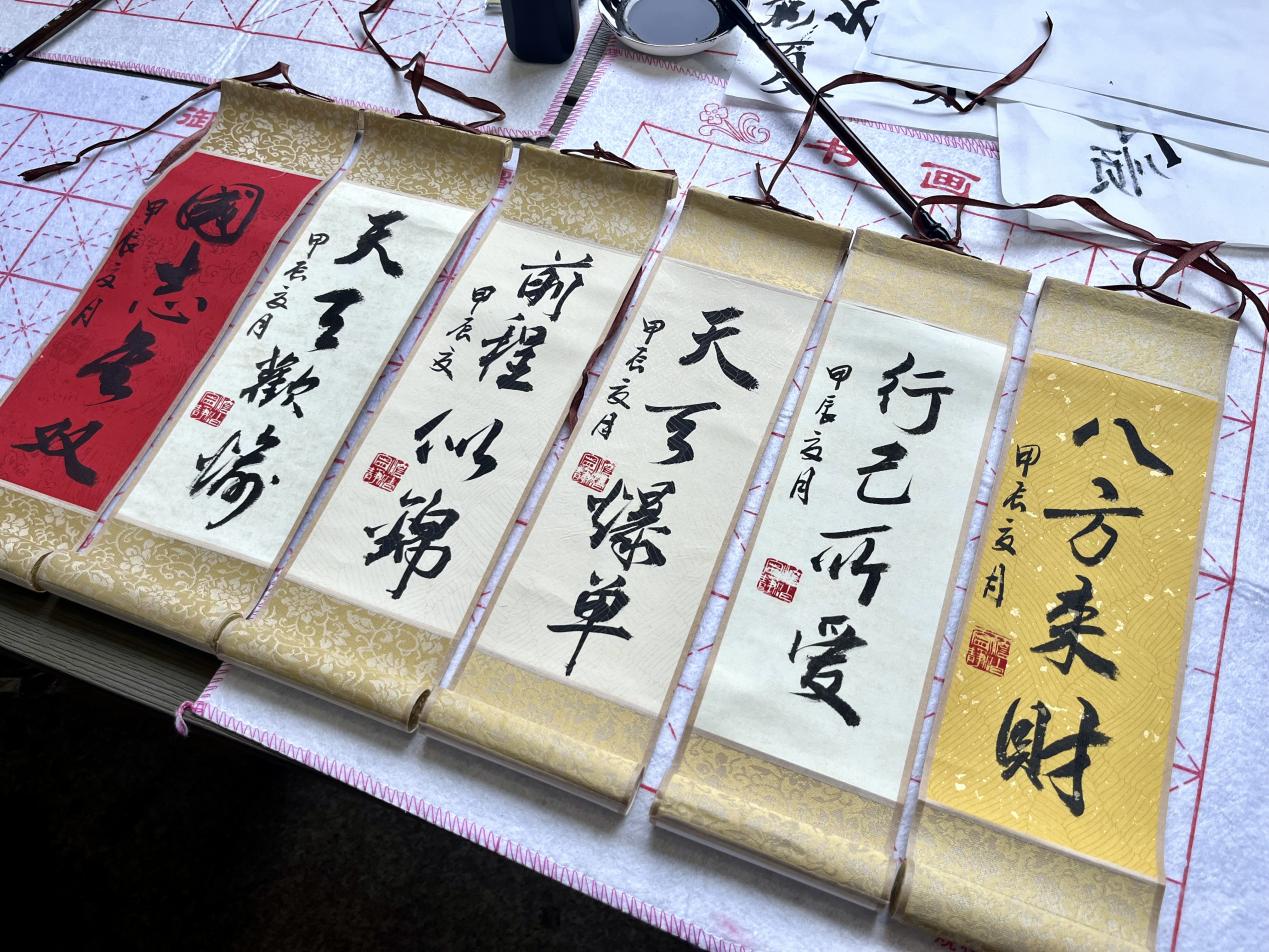 國志無双
甲辰夏月
天天歡愉
甲辰夏月
前程似錦
甲辰夏
天天爆单
甲辰夏月
行己所爱
甲辰夏月
八方来財
甲辰夏月
御
书画
顺